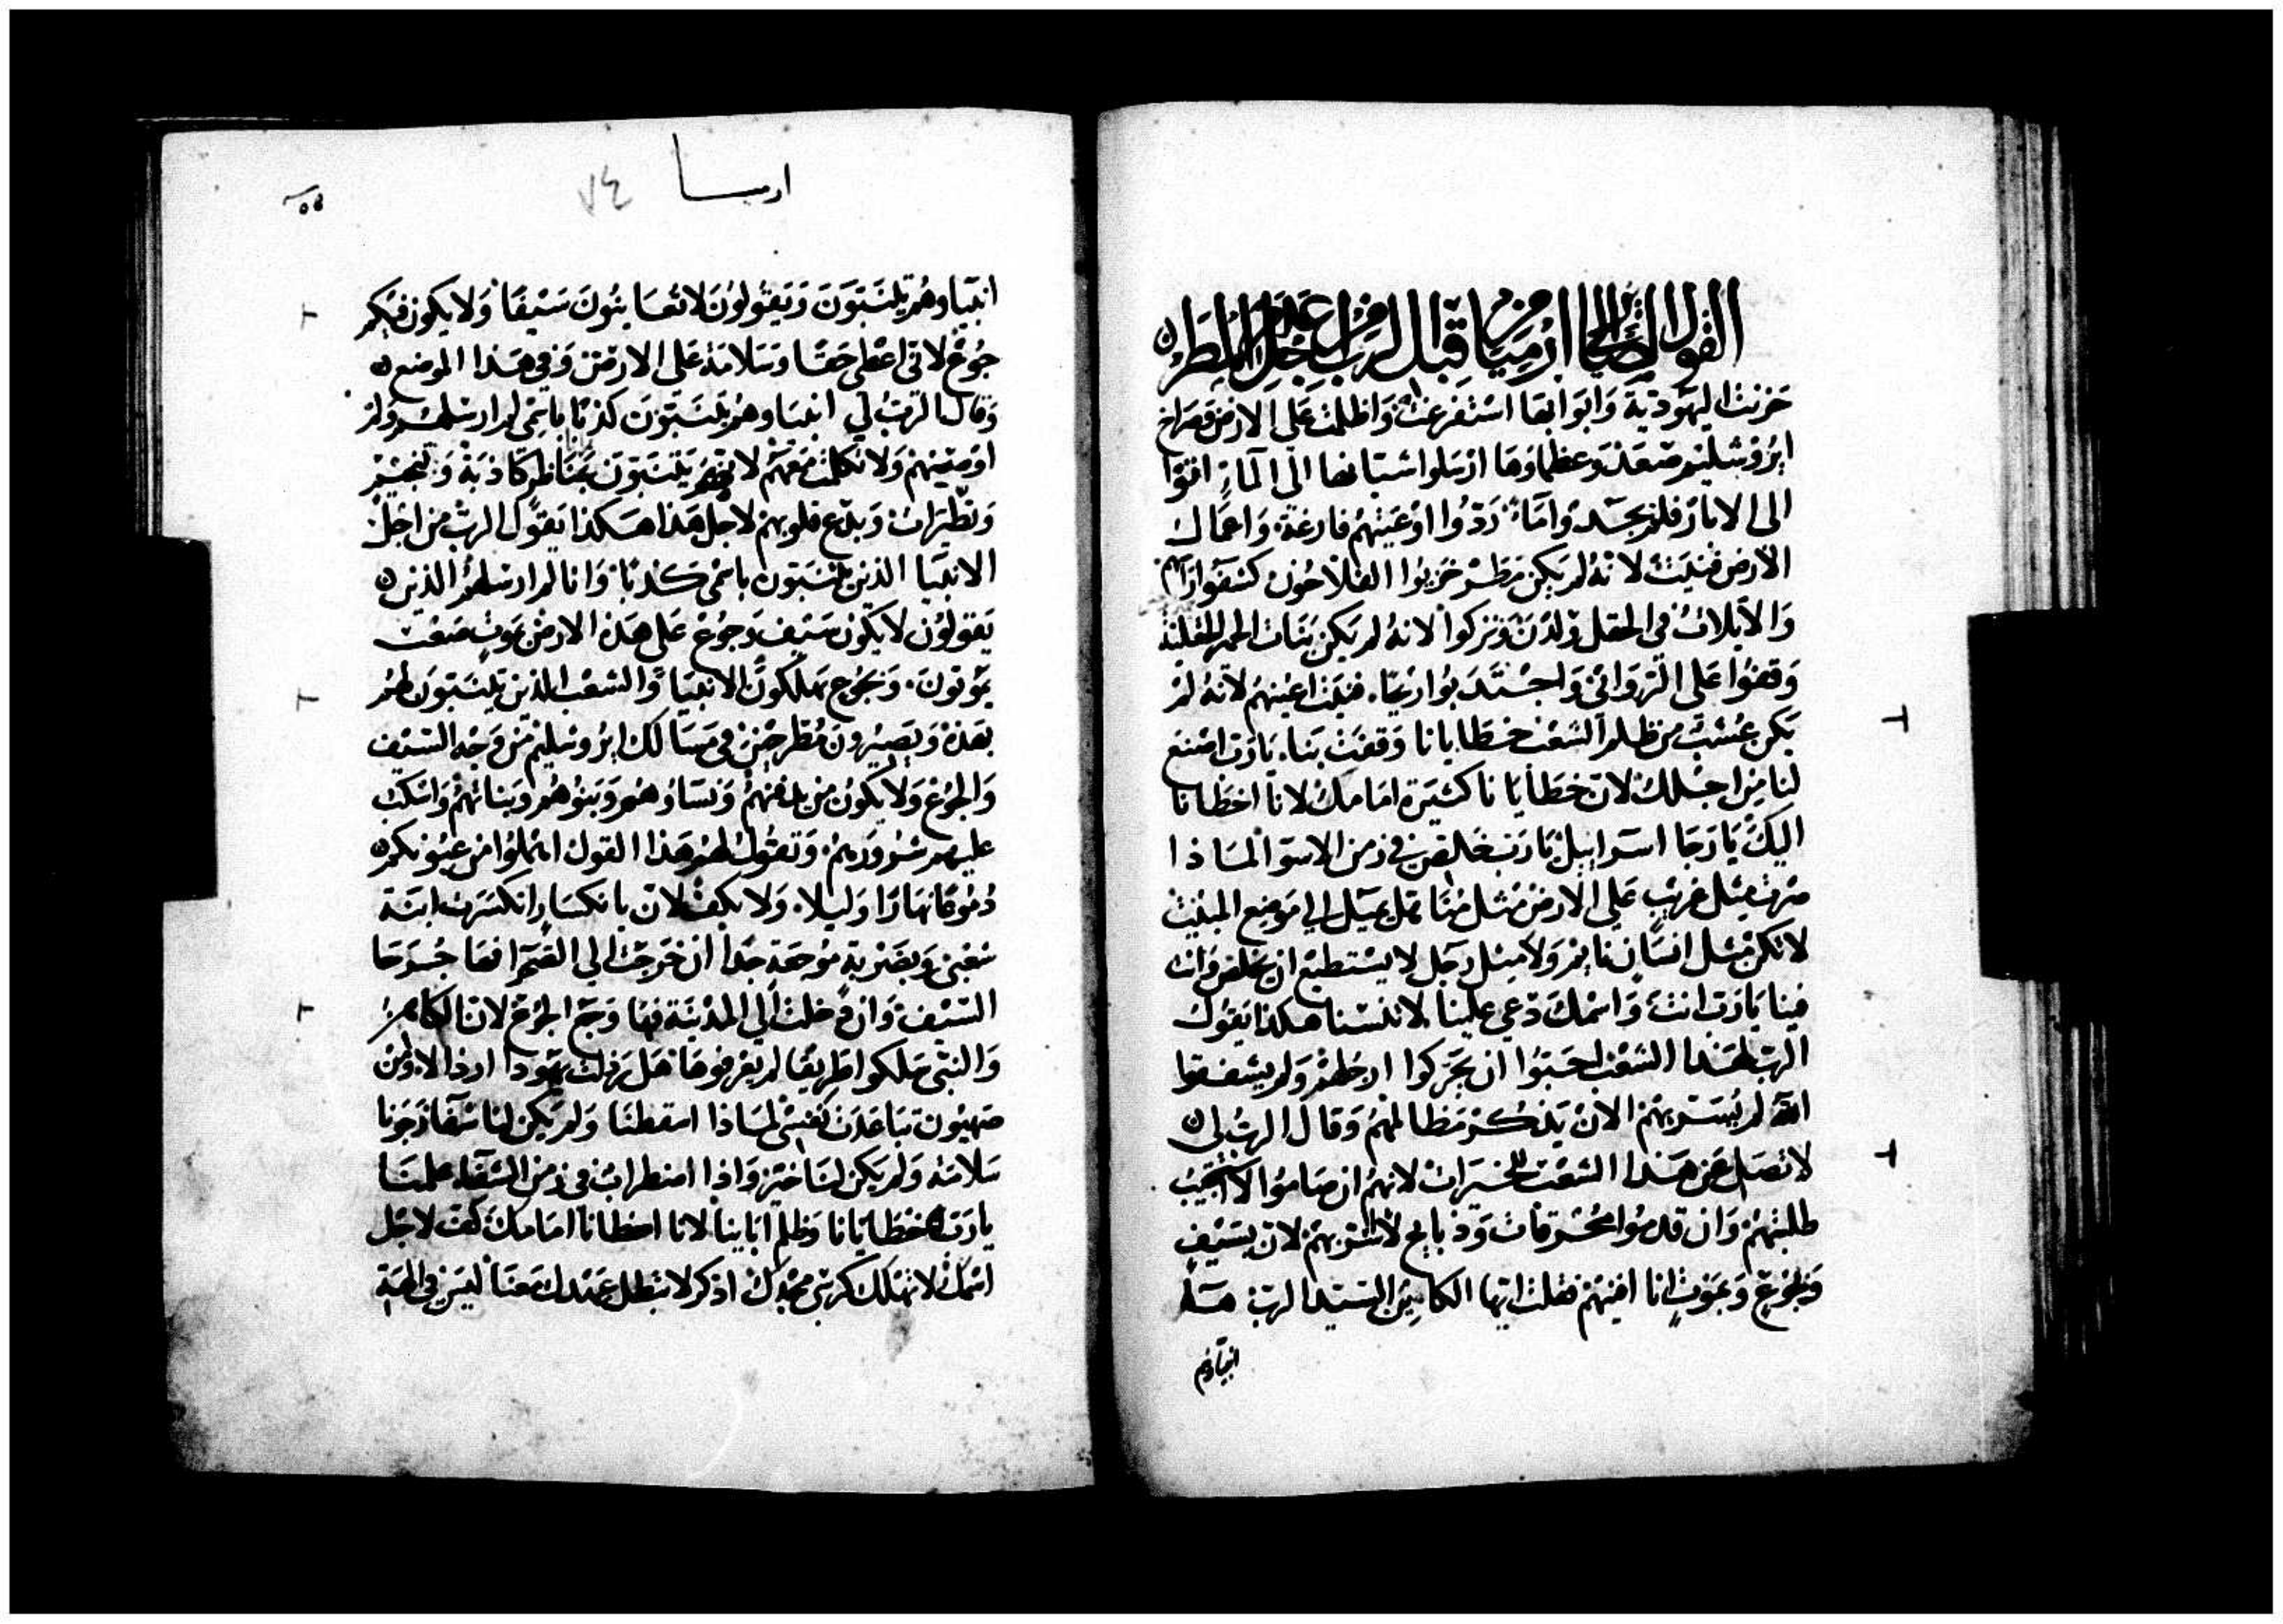 القول الصاير الى ارميا من قبل الرب من اجل عدم المطر
حزنت اليهودية وابوابها استفرغت واظلمت على الارض وصراخ
ايروشليم صعد وعظماوها ارسلوا شبانها الى الماء اتوا
الى الابار فلم يجدوا ماء ردوا اوعيتهم فارغة واعمال
الارض فنيت لانه لم يكن مطر خزيوا الفلاحون كشفوا راسهم
والايلات في الحقل ولدن وتركوا لانه لم يكن نبات الحمر
وقفوا على الروابي واجتدبوا ريحا فنيت اعينهم لانه لم
يكن عشب من ظلم الشعب خطايانا وقفت بنا يارب اصنع
لنا من اجلك لان خطايانا كثيرة امامك لانا اخطانا
اليك يا رجا اسرايل يارب تخلص في زمن الاسوا لماذا
صرت مثل غريب على الارض مثل من يميل الى موضع المبيت
لا تكن مثل انسان نايم ولا مثل رجل لا يستطيع ان يخلص وانت
فينا يارب انت واسمك دعي علينا لا تنسنا هكذا يقول
الرب لهذا الشعب احبوا ان يحركوا ارجلهم ولم يشفقوا
الله لم يسر بهم الان يذكر مظالمهم وقال الرب لي
لا تصل عن هذا الشعب للخيرات لانهم ان صاموا لا اجيب
طلبتهم وان قدموا محرقات وذبايح لا اسر بهم لان بسيف
وبجوع وبموت انا افنيهم فقلت ايها الكاين السيد الرب هذا
انبياوهم
ارميا
٧٤
انبياوهم يتنبون ويقولون لا تعاينون سيفا ولا يكون فيكم
جوع لاني اعطي حقا وسلامة على الارض وفي هذا الموضع
وقال الرب لي انبياوهم يتنبون كذبا باسمي لم ارسلهم ولم
اوصيهم ولا تكلمت معهم لانهم يتنبون بمناظر كاذبة وتنجيم
وتطيرات وبدع قلوبهم لاجل هذا هكذا يقول الرب من اجل
الانبيا الذين يتنبون باسمي كذبا وانا لم ارسلهم الذين
يقولون لا يكون سيف وجوع على هذه الارض بموت صعب
يموتون وبجوع يهلكون الانبيا والشعب الذين يتنبون لهم
بهذه ويصيرون مطرحين في مسالك ايروشليم من وجه السيف
والجوع ولا يكون من يدفنهم ونساوهم وبنوهم وبناتهم واسكب
عليهم شرورهم وتقول لهم هذا القول اهملوا من عيونكم
دموعا نهارا وليلا ولا يكف لان بانكسار انكسرت ابنة
شعبي وبضربة موجعة جدا ان خرجت الى القصر فها جرحا
السيف وان دخلت الى المدينة فها وجع الجوع لان الكاهن
والنبي سلكوا طريقا لم يعرفوها هل رذلت يهودا ارذالا ومن
صهيون تباعدت نفسي لماذا اسقطنا ولم يكن لنا شفا رجونا
سلامة ولم يكن لنا خير واذا اضطراب في زمن الشفا علمنا
يارب خطايانا وظلم اباينا لانا اخطانا امامك كف لاجل
اسمك لا تهلك كرسي مجدك اذكر لا تبطل عهدك معنا ليس في الهة